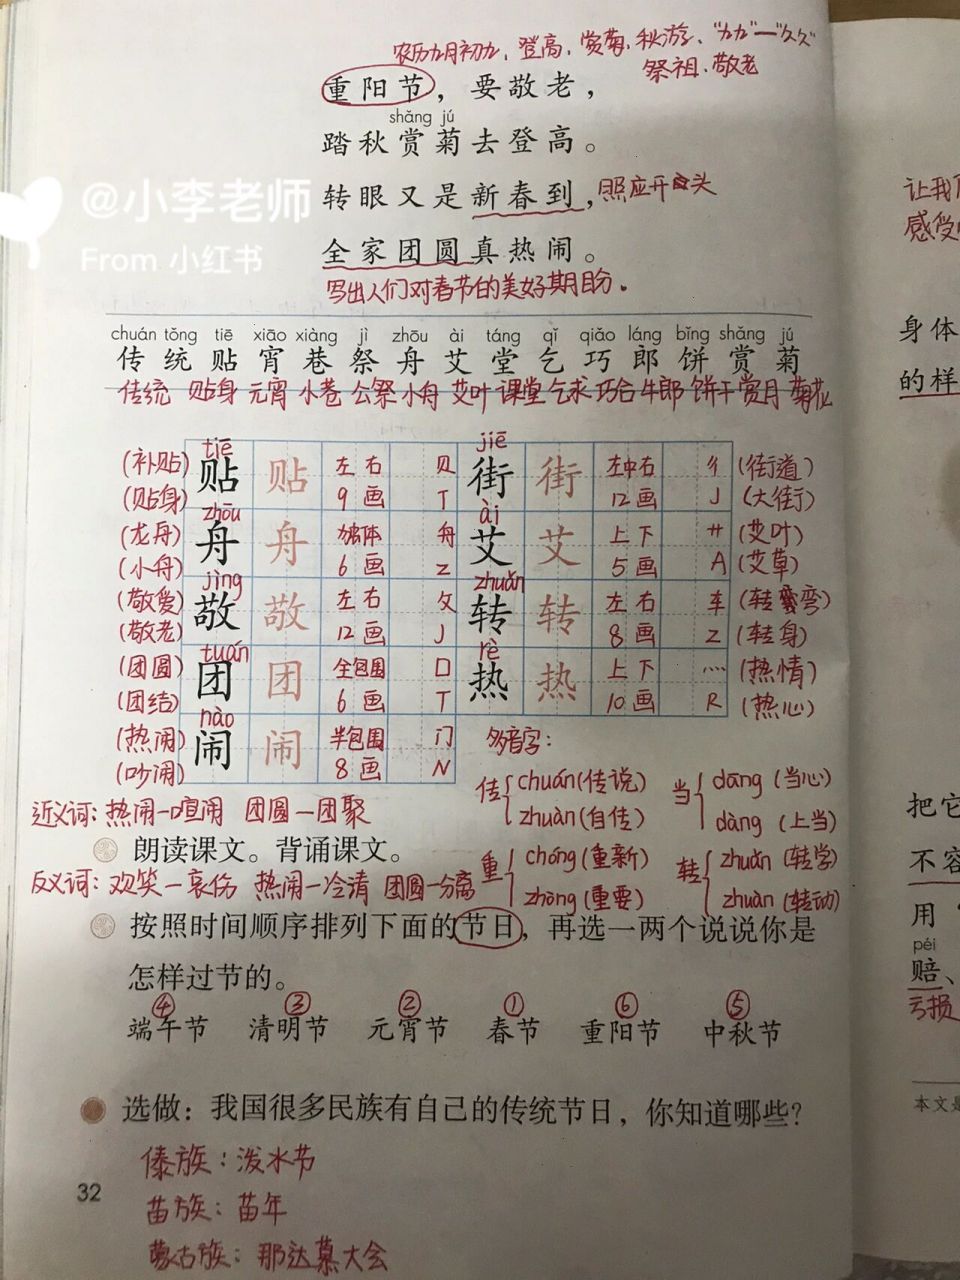 农历九月初九、登高、赏菊、秋游、“九九”—“久久”
祭祖、敬老
重阳节，要敬老，
shǎng jú
踏秋赏菊去登高。
转眼又是新春到，照应开头
全家团圆真热闹。
写出人们对春节的美好期盼。
@小李老师
From 小红书
chuán tǒng tiē xiāo xiàng jì zhōu ài táng qǐ qiǎo láng bǐng shǎng jú
传 统 贴 宵 巷 祭 舟 艾 堂 乞 巧 郎 饼 赏 菊
传统 贴身 元宵 小巷 公祭 小舟 艾叶 课堂 乞求 巧合 牛郎 饼干 赏月 菊花
tiē jiē
(补贴) 贴 贴 左右 贝 街 街 左中右 彳 (街道)
(贴身) 9画 T 12画 J (大街)
zhōu ài
(龙舟) 舟 舟 独体 舟 艾 艾 上下 艹 (艾叶)
(小舟) 6画 Z 5画 A (艾草)
jìng zhuǎn
(敬爱) 敬 敬 左右 攵 转 转 左右 车 (转弯)
(敬老) 12画 J 8画 Z (转身)
tuán rè
(团圆) 团 团 全包围 囗 热 热 上下 灬 (热情)
(团结) 6画 T 10画 R (热心)
nào
(热闹) 闹 闹 半包围 门 多音字：
(吵闹) 8画 N
传 chuán(传说) zhuàn(自传) 当 dāng (当心) dàng (上当)
近义词：热闹—喧闹 团圆—团聚
朗读课文。背诵课文。
重 chóng(重新) zhòng(重要) 转 zhuǎn (转学) zhuàn (转动)
反义词：欢笑—哀伤 热闹—冷清 团圆—分离
按照时间顺序排列下面的节日，再选一两个说说你是
怎样过节的。
④ ③ ② ① ⑥ ⑤
端午节 清明节 元宵节 春节 重阳节 中秋节
选做：我国很多民族有自己的传统节日，你知道哪些？
傣族：泼水节
苗族：苗年
蒙古族：那达慕大会
32
让我
感受
身体
的样
把它
不容
用
péi
赔、
亏损
本文是